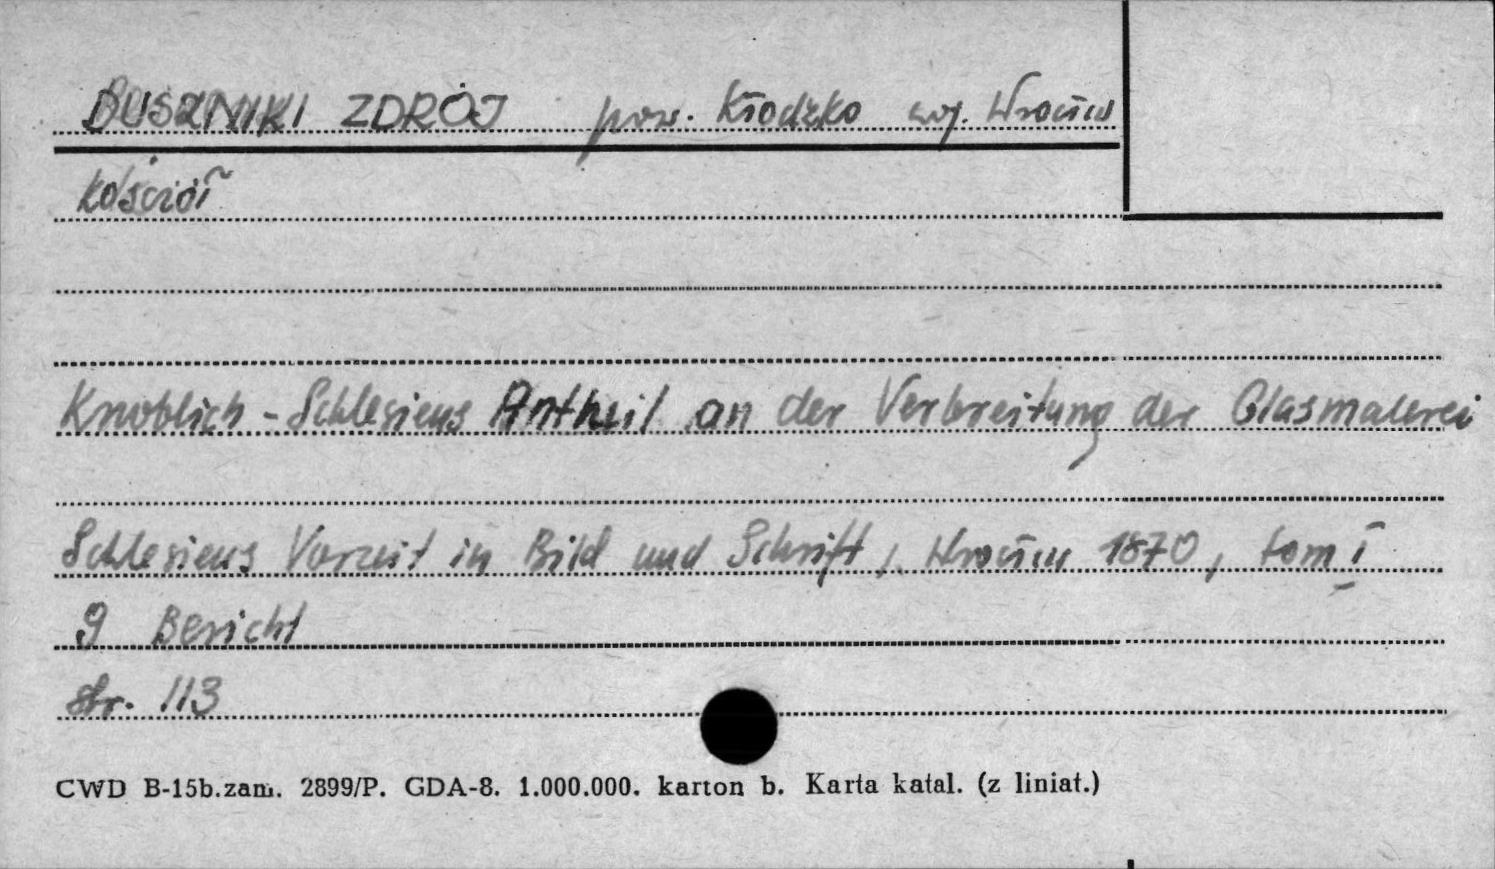 DUSZNIKI ZDRÓJ pow. Kłodzko woj. Wrocław
Kościół
Knoblich - Schlesiens Antheil an der Verbreitung der Glasmalerei
Schlesiens Vorzeit in Bild und Schrift, Wrocław 1870, tom I
9 Bericht
str. 113
CWD B-15b.zam. 2899/P. GDA-8. 1.000.000. karton b. Karta katal. (z liniat.)